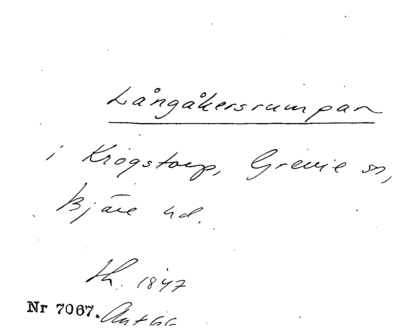 Långåkersrumpan
i Krogstorp, Grevie sn,
Bjäre hd.
1847
Nr 7067.